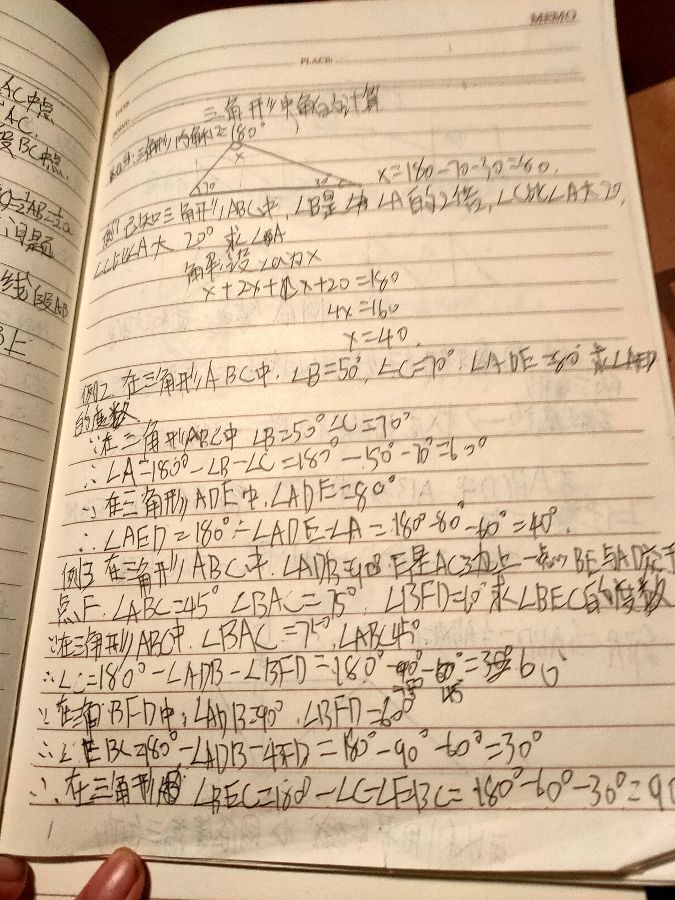 AC中点
AC.
BC中点.
问题
线段AB
上
MEMO
PLACE:
DATE
三角形中角的计算
三角形内角和是180°
x
70
30
x=180-70-30=80.
例1 已知三角形ABC中,∠B是∠A的2倍,∠C比∠A大20,
∠C比∠A大 20° 求∠A
解:设∠A为x
x+2x+x+20=180
4x=160
x=40.
例2. 在三角形ABC中.∠B=50°,∠C=70°.∠ADE=80° 求∠AED
的度数
∵在三角形ABC中 ∠B=50° ∠C=70°
∴∠A=180°-∠B-∠C=180°-50°-70°=60°
∵在三角形ADE中,∠ADE=80°
∴∠AED=180°-∠ADE-∠A=180°-80°-60°=40°.
例3 在三角形ABC中.∠ADB=90.E是AC边上一点 BE与AD交于
点F.∠ABC=45° ∠BAC=75°.∠BFD= 求∠BEC的度数
∵在三角形ABC中.∠BAC=75°,∠ABC45°
∴∠C=180°-∠ADB-∠BFD=180° 60
75
45
∵在 BFD中,∠ADB=90°.∠BFD=60°
∴∠EBC=180°-∠ADB-∠BFD=180°-90°-60°=30°
∴在三角形 ∠BEC=180-∠C-∠EBC=180°-60°-30°=90